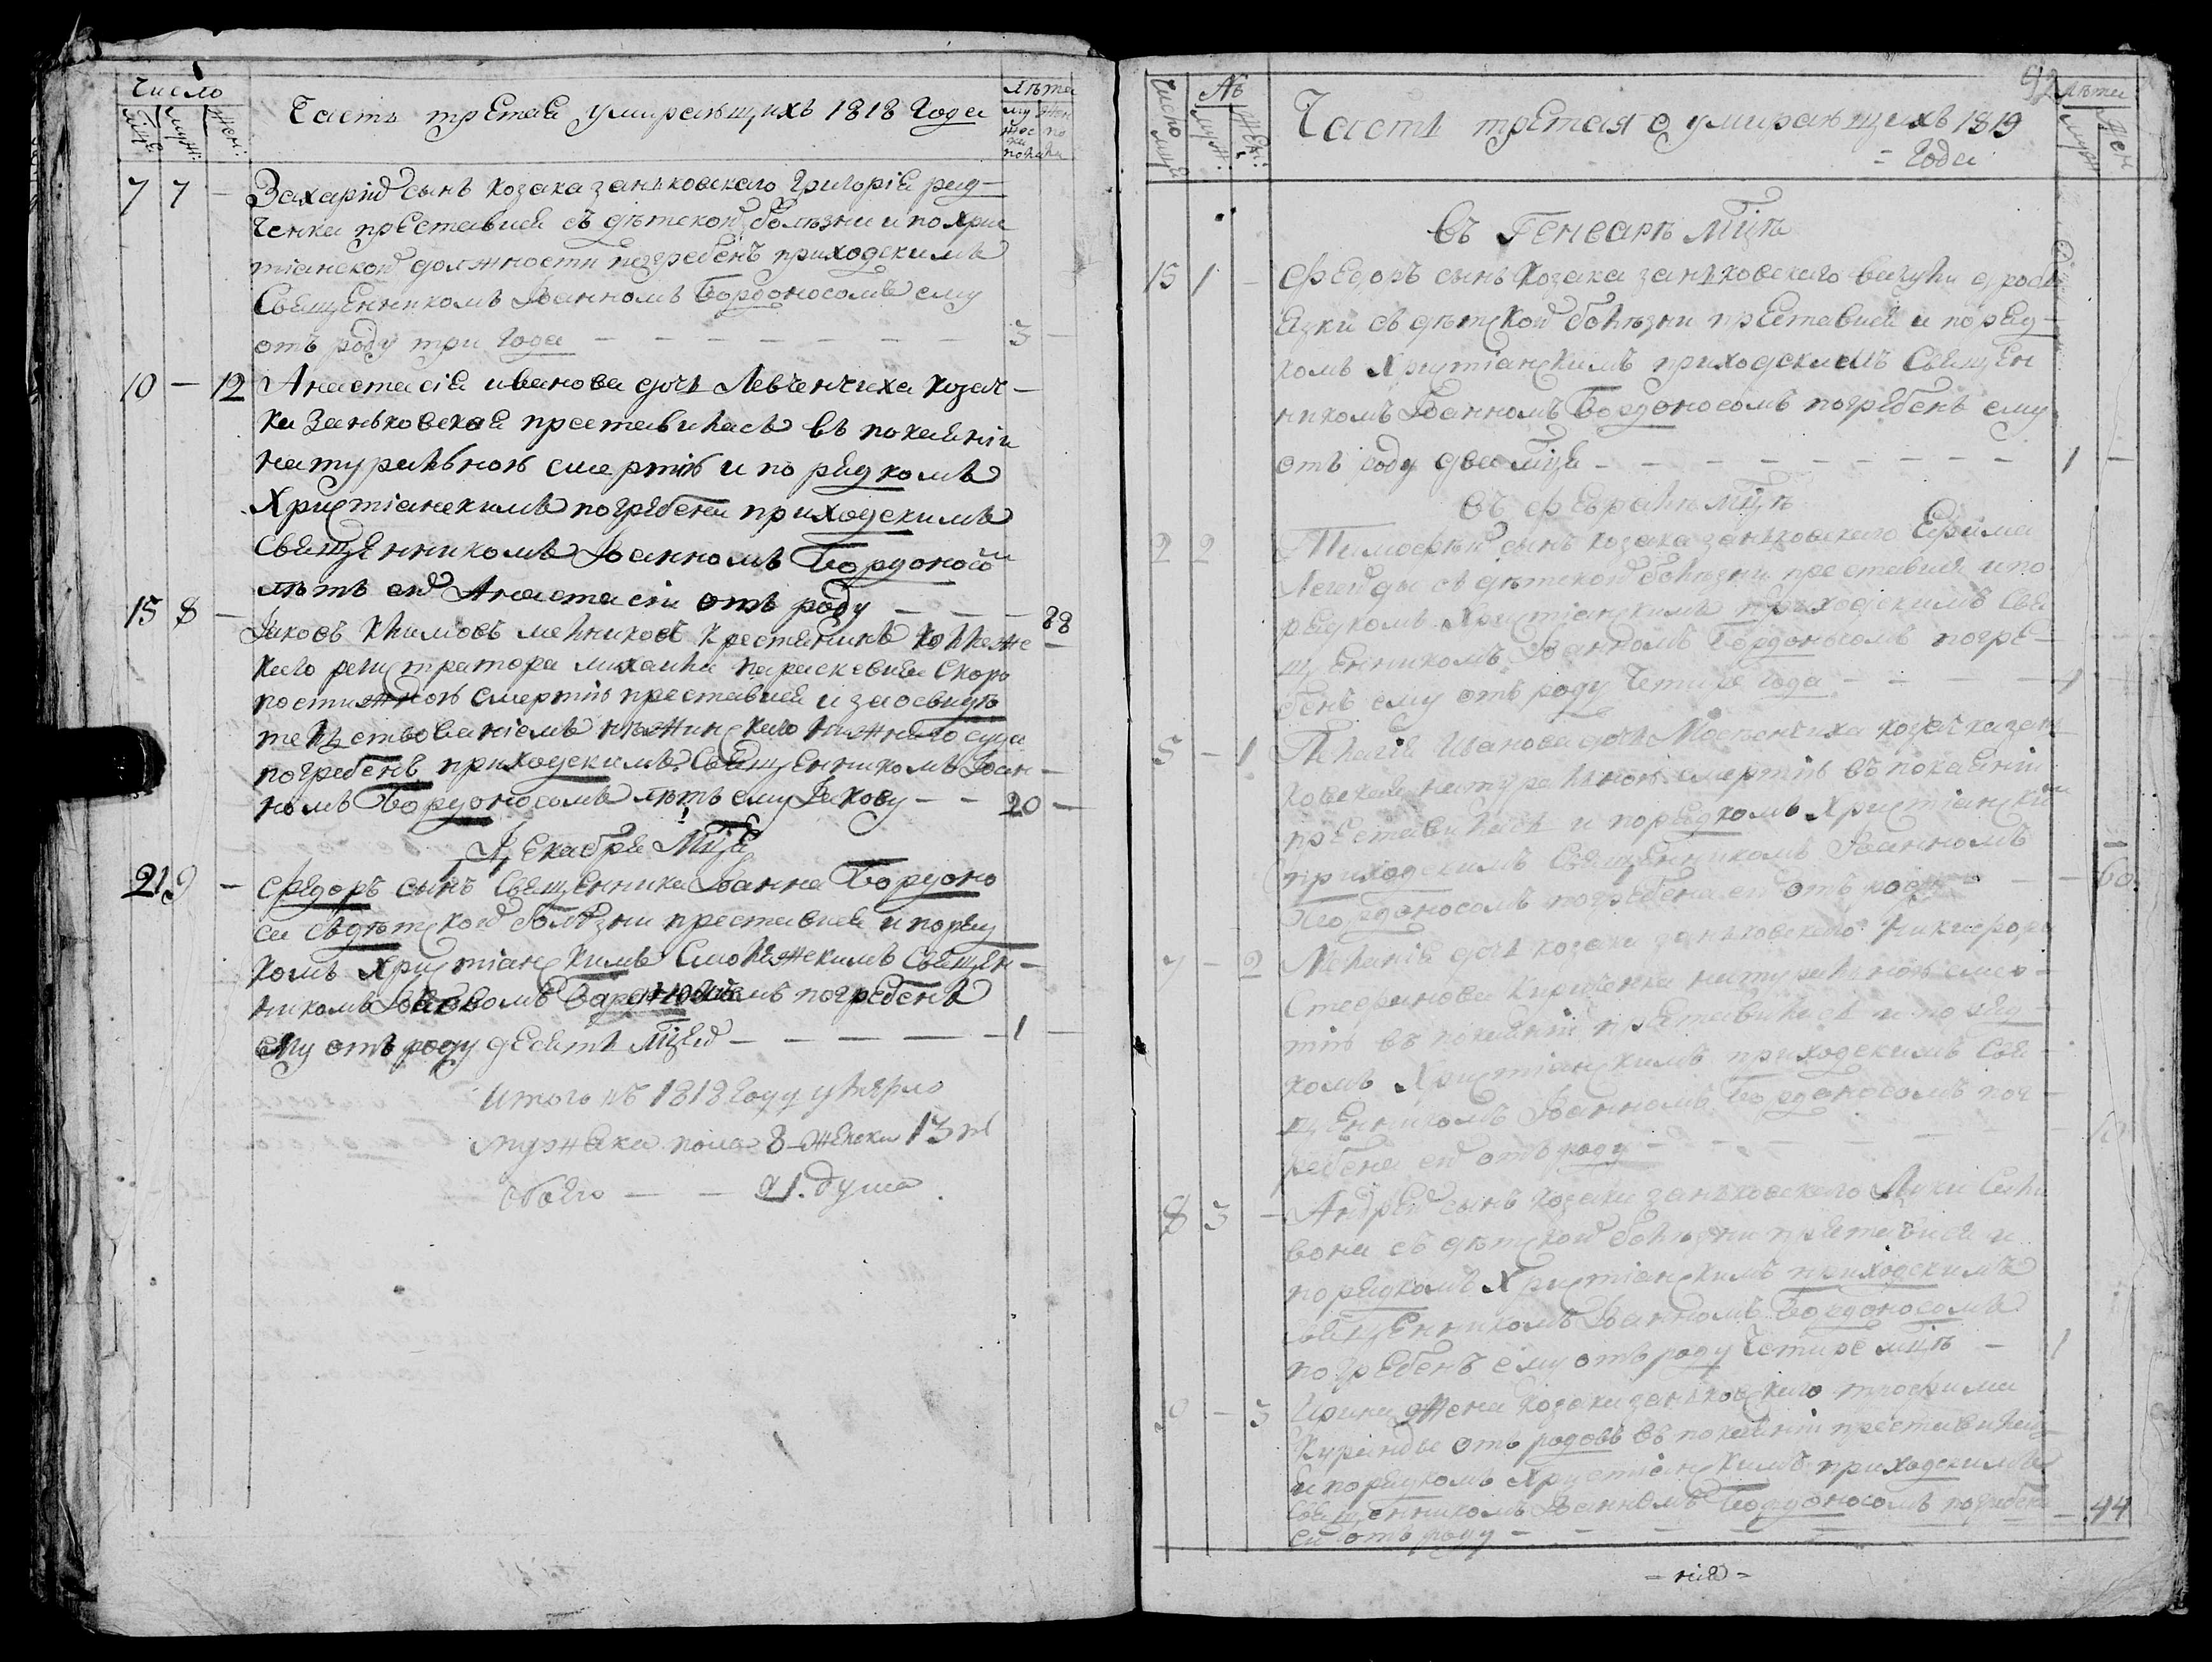 Число
мца
муж:
жен:
Часть третая умирающихъ 1818 Года
лѣта
7 7 — Захарій сынъ козака заньковского Григорія ряд-
ченка преставися съ дѣтской болѣзни и по хрис
тіанской должности погребенъ приходскимъ
Священникомъ Іоанномъ Бордоносомъ ему
отъ роду три года — — — — — — — 3 —
10 — 12 Анастасія иванова дочь Левченчиха козач-
ка Заньковская преставилась въ покаяніи
натуральною смертію и порядкомъ
Христіанскимъ погребена приходскимъ
Священникомъ Іоанномъ Бордоносом
лѣтъ ей Анастасіи отъ роду — — — 88
15 8 — Іаковъ Климовъ мельниковъ крестянинъ коллежс
кого регистратора михаила параскевича Скоро
постижною смертію преставися и засвидѣ
тельствованіемъ нѣжинского нижнего суда
погребенъ приходскимъ Священникомъ Іоан-
номъ Бордоносомъ лѣтъ ему Іакову — — 20 —
Декабря Мца
21 9 — Федоръ сынъ Священника Іоанна Бордоно
са съ дѣтской болѣзни преставися и поряд
комъ Христіанскимъ Смоляжскимъ Священ-
никомъ погребенъ
ему отъ роду десять мцей — — — — — 1 —
Итого въ 1818 году умерло
мужска пола 8 женска 13 ть
обоего — — 21. душа
42
Число мца
№
муж:
жен:
Часть третая о умирающихъ 1819
= Года
лѣта
муж
жен
Въ Генварѣ Мцѣ
15 1 — Федоръ сынъ Козака заньковского
язки съ дѣтской болѣзни преставися и поряд-
комъ Христіанскимъ приходскимъ Священ
никомъ Іоанномъ Бордоносомъ погребенъ ему
отъ роду два мца — — — — — — — — 1 —
Въ февралѣ Мцѣ
2 2 Тимофѣй сынъ козака заньковского Ефима
съ дѣтской болѣзни преставися и по
рядкомъ Христіанскимъ приходскимъ Свя
щенникомъ Іоанномъ Бордоносомъ погре-
бенъ ему отъ роду Четире года — — — — 1
5 — 1 Пелагія Иванова дочь козачка зань
ковская натуральною смертію въ покаяніи
преставилась и порядкомъ Христіански
приходскимъ Священникомъ Іоанномъ
Бордоносомъ погребена ей отъ роду — — — 60.
7 — 2 Меланія дочь козака заньковского никифора
Стефанова Кириченка натуральною смер-
тію въ покаяніи преставилась и поряд-
комъ Христіанскимъ приходскимъ Свя
щенникомъ Іоанномъ Бордоносомъ пог-
ребена ей отъ роду — — — — — —
8 3 — Андрей сынъ козака заньковского Луки Сили
вона съ дѣтской болѣзни преставися и
порядкомъ Христіанскимъ приходскимъ
Священникомъ Іоанномъ Бордоносомъ
погребенъ ему отъ роду Четире мцѣ — 1
9 — 3 Ирина жена Козака заньковского трофима
отъ родовъ въ покаяніи преставилась
и порядкомъ Христіанскимъ приходскимъ
Священникомъ Іоанномъ Бордоносомъ погребена
ей отъ роду — — — — — — — 44